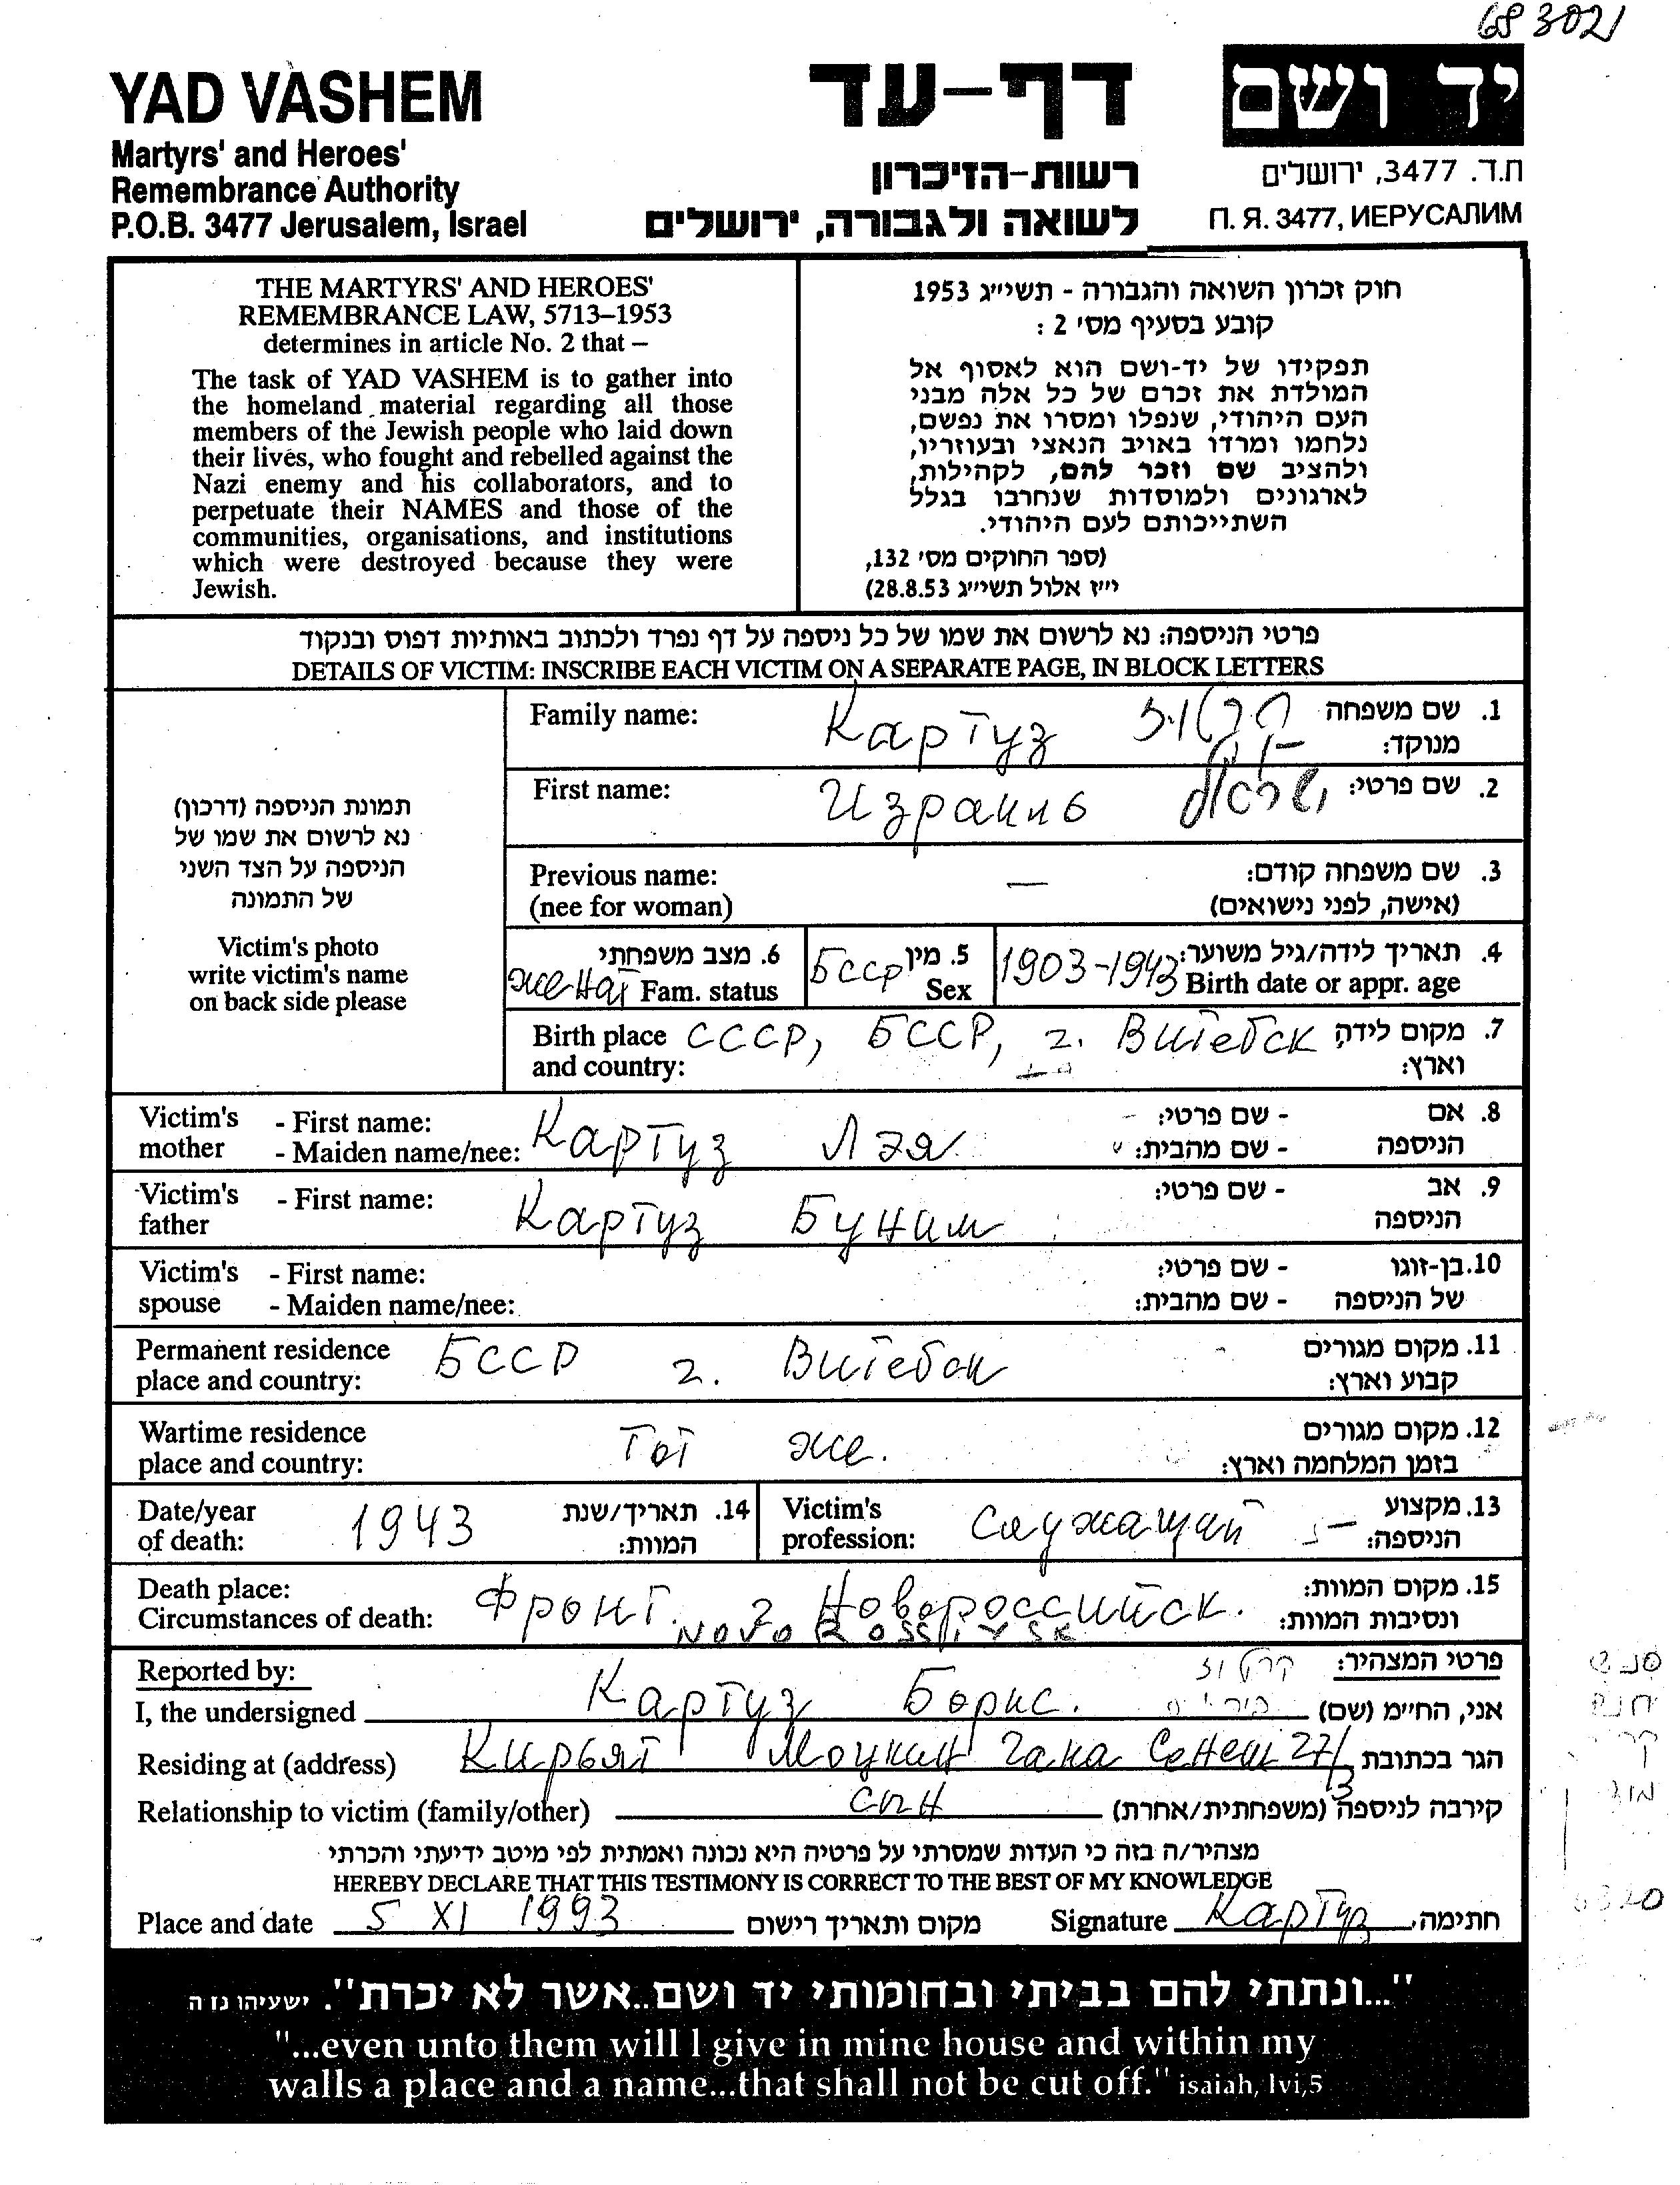 68 3021
YAD VASHEM
Martyrs' and Heroes'
Remembrance Authority
P.O.B. 3477 Jerusalem, Israel
דף-עד
רשות-הזיכרון
לשואה ולגבורה, ירושלים
יד ושם
ת.ד. 3477, ירושלים
П. Я. 3477, ИЕРУСАЛИМ
THE MARTYRS' AND HEROES'
REMEMBRANCE LAW, 5713–1953
determines in article No. 2 that –
The task of YAD VASHEM is to gather into
the homeland material regarding all those
members of the Jewish people who laid down
their lives, who fought and rebelled against the
Nazi enemy and his collaborators, and to
perpetuate their NAMES and those of the
communities, organisations, and institutions
which were destroyed because they were
Jewish.
חוק זכרון השואה והגבורה - תשי״ג 1953
קובע בסעיף מס׳ 2 :
תפקידו של יד-ושם הוא לאסוף אל
המולדת את זכרם של כל אלה מבני
העם היהודי, שנפלו ומסרו את נפשם,
נלחמו ומרדו באויב הנאצי ובעוזריו,
ולהציב שם וזכר להם, לקהילות,
לארגונים ולמוסדות שנחרבו בגלל
השתייכותם לעם היהודי.
(ספר החוקים מס׳ 132,
י״ז אלול תשי״ג 28.8.53)
פרטי הניספה: נא לרשום את שמו של כל ניספה על דף נפרד ולכתוב באותיות דפוס ובנקוד
DETAILS OF VICTIM: INSCRIBE EACH VICTIM ON A SEPARATE PAGE, IN BLOCK LETTERS
תמונת הניספה (דרכון)
נא לרשום את שמו של
הניספה על הצד השני
של התמונה
Victim's photo
write victim's name
on back side please
Family name: Картуз קרטוז 1. שם משפחה
מנוקד:
First name: Израиль ישראל 2. שם פרטי:
Previous name: — 3. שם משפחה קודם:
(nee for woman) (אישה, לפני נישואים)
6. מצב משפחתי 5. מין 4. תאריך לידה/גיל משוער:
женат Fam. status БССР Sex 1903-1943 Birth date or appr. age
Birth place СССР, БССР, г. Витебск 7. מקום לידה
and country: וארץ:
Victim's - First name: - שם פרטי: 8. אם
mother - Maiden name/nee: Картуз Лэя - שם מהבית: הניספה
Victim's - First name: Картуз Буним - שם פרטי: 9. אב
father הניספה
Victim's - First name: - שם פרטי: 10. בן-זוגו
spouse - Maiden name/nee: - שם מהבית: של הניספה
Permanent residence БССР г. Витебск 11. מקום מגורים
place and country: קבוע וארץ:
Wartime residence тот же. 12. מקום מגורים
place and country: בזמן המלחמה וארץ:
Date/year 1943 14. תאריך/שנת
of death: המוות:
Victim's служащий 13. מקצוע
profession: הניספה:
Death place: Фронт. г. Новороссийск. 15. מקום המוות:
Circumstances of death: NOVO ROSSIYSK ונסיבות המוות:
Reported by: קרטוז פרטי המצהיר:
I, the undersigned Картуз Борис. אני, החי״מ (שם)
Residing at (address) Кирьят Моцкин Хана Сенеш 27/3 הגר בכתובת
Relationship to victim (family/other) сын קירבה לניספה (משפחתית/אחרת)
מצהיר/ה בזה כי העדות שמסרתי על פרטיה היא נכונה ואמתית לפי מיטב ידיעתי והכרתי
HEREBY DECLARE THAT THIS TESTIMONY IS CORRECT TO THE BEST OF MY KNOWLEDGE
Place and date 5 XI 1993 מקום ותאריך רישום Signature Картуз חתימה
"...ונתתי להם בביתי ובחומותי יד ושם..אשר לא יכרת". ישעיהו נו ה
"...even unto them will I give in mine house and within my
walls a place and a name...that shall not be cut off." isaiah, lvi,5